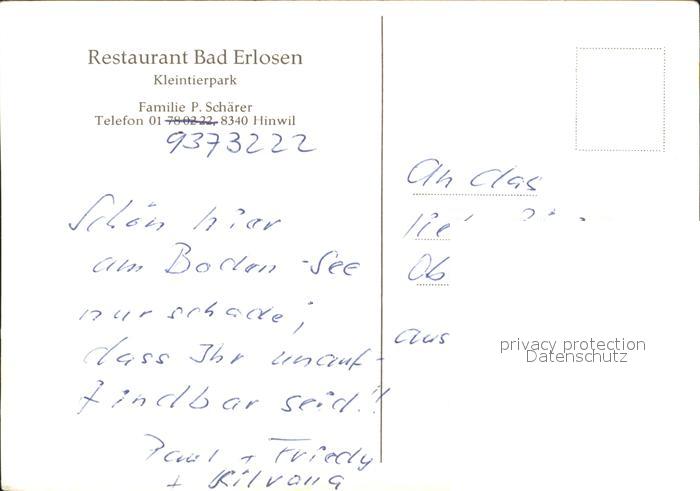 Restaurant Bad Erlosen
Kleintierpark
Familie P. Schärer
Telefon 01 78 02 22, 8340 Hinwil
9373222
Schön hier
am Boden-See
nur schade;
dass Ihr unauf-
findbar seid!!
Paul + Friedy
+
An das
Ob
aus
privacy protection
Datenschutz